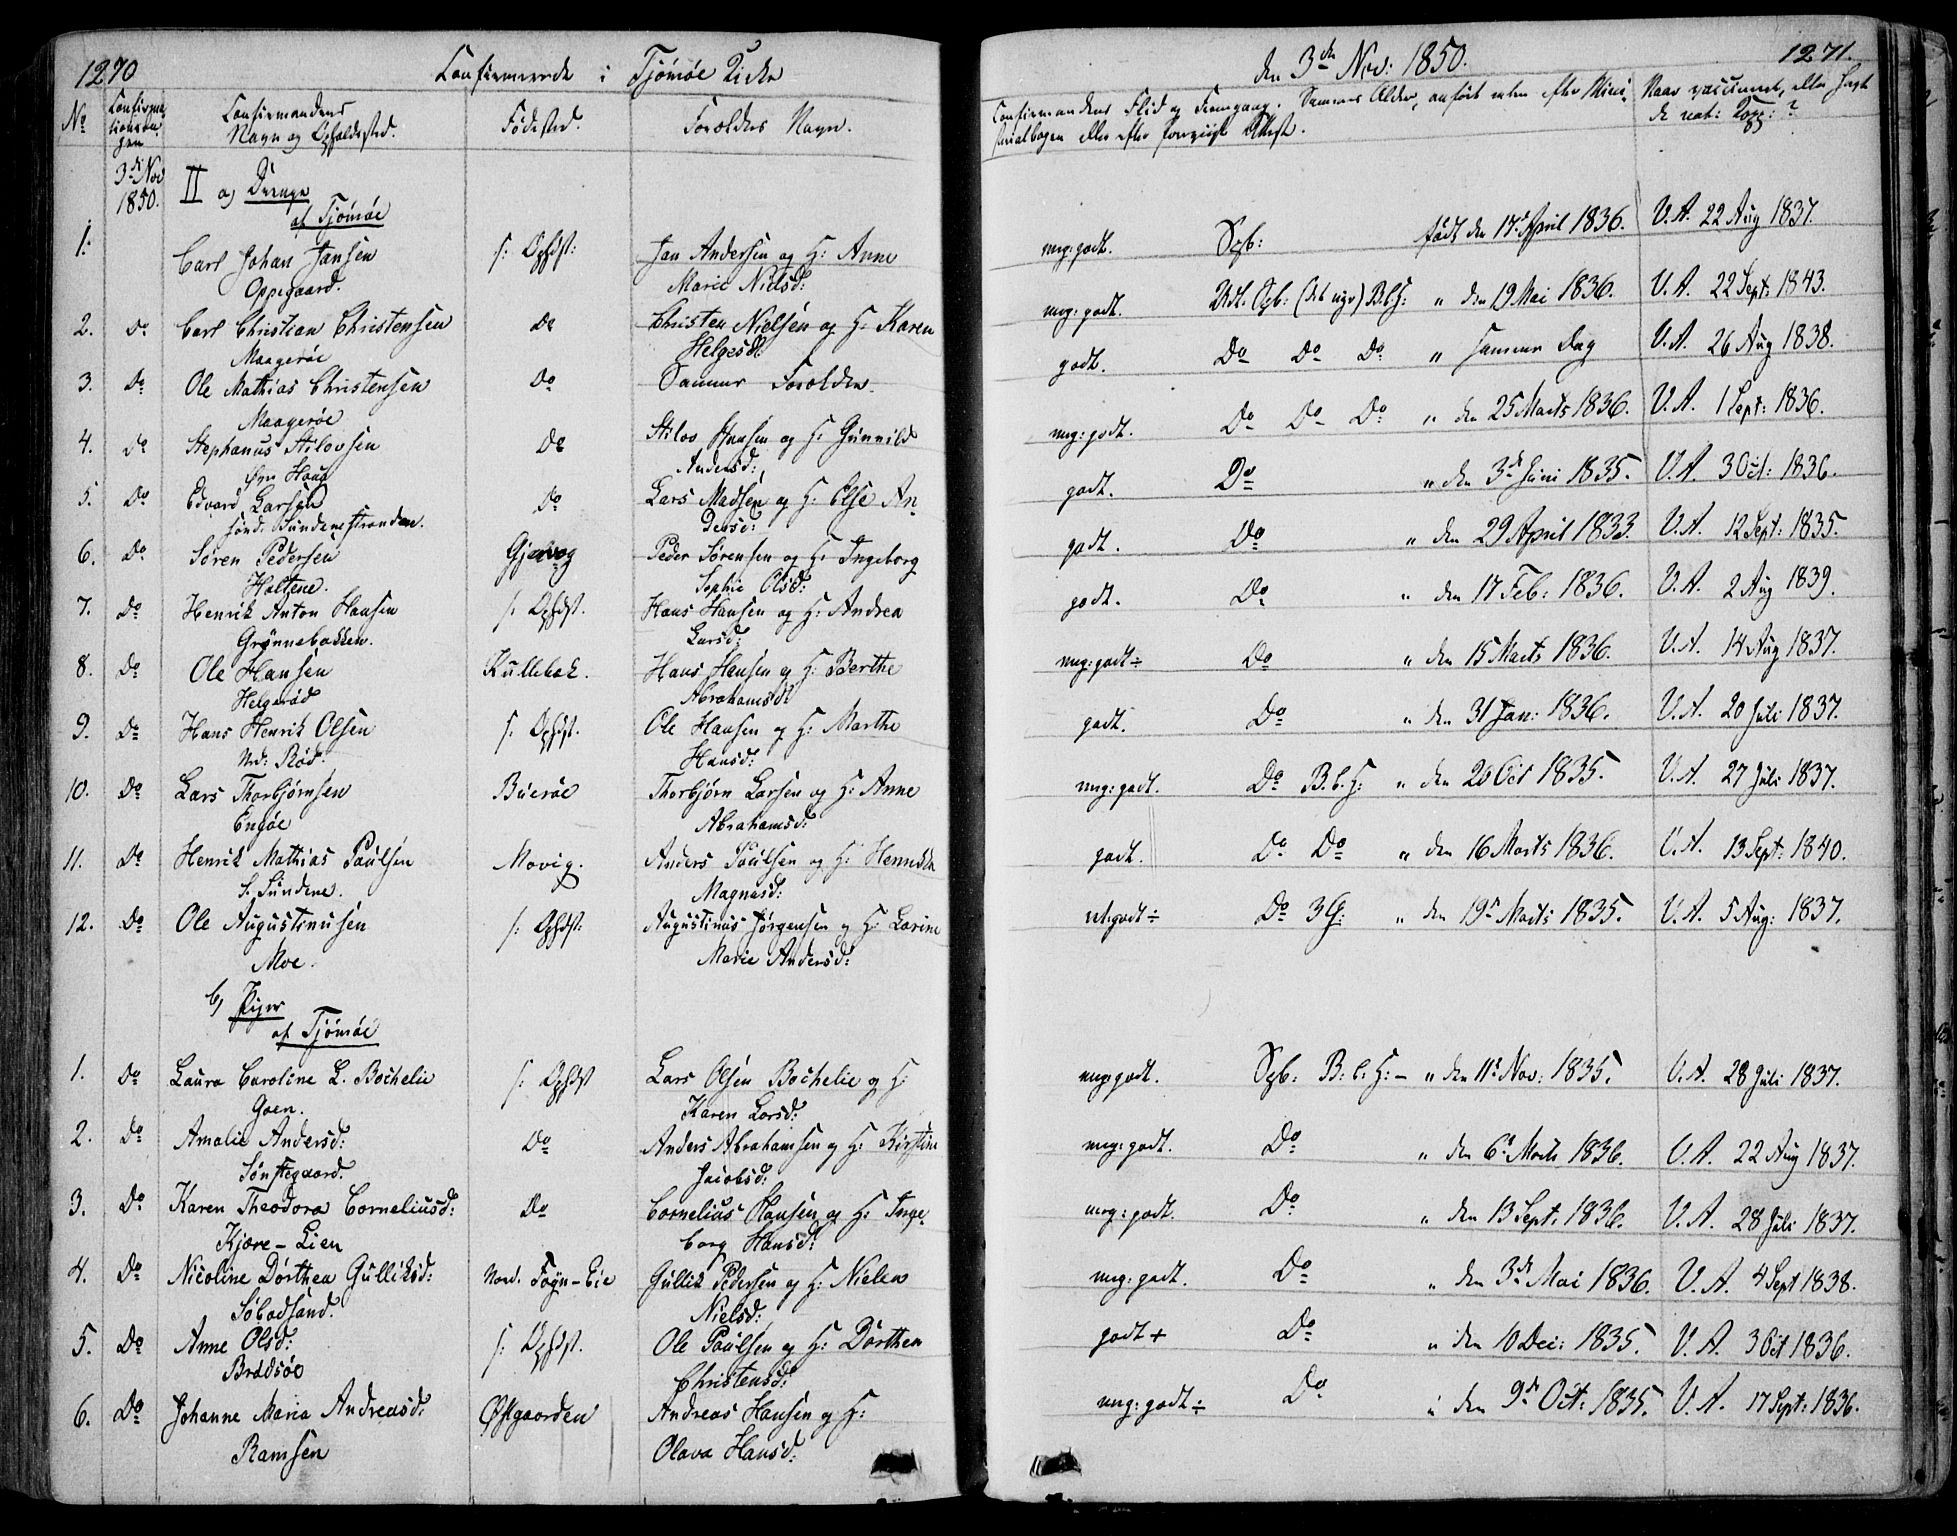 1270
Confirmerede i Tjömöe Kirke
No
Confirma
tionsda
gen
Confirmandens
Navn og Opholdssted.
Födested.
Foreldres Navn.
3die Nov
1850.
II a) Drenge
af Tjömöe
1. Carl Johan Jansen s: Ophdst: Jan Andersen og H: Anne
Oppegaard. Marie Nielsd:
2. Do Carl Christian Christensen Do Christen Nielsen og H: Karen
Maageröe Helgesd:
3. Do Ole Mathias Christensen Do Samme Forældre.
Maageröe
4. Do Stephanus Stilovsen Do Stilov Hansen og H: Gunnild
Haug Andersd:
5. Do Edvard Larsen Do Lars Madsen og H: Else An
sönd: Sundenestranden. dersd:
6. Do Sören Pedersen Gjervog Peder Sörensen og H: Ingeborg
Holtene. Sophie Olsd:
7. Do Henrik Anton Hansen s: Ophdst. Hans Hansen og H: Andrea
Grönnebakken. Larsd:
8. Do Ole Hansen Kullebek. Hans Hansen og H: Berthe
Helgeröd Abrahamsd:
9. Do Hans Henrik Olsen s: Ophdst. Ole Hansen og H: Marthe
Nd: Röd. Hansd:
10. Do Lars Thorbjörnsen Bueröe Thorbjörn Larsen og H: Anne
Engöe Abrahamsd:
11. Do Henrik Mathias Paulsen Movig. Anders Paulsen og H: Hennikke
S. Sundene. Magnusd:
12. Do Ole Augustinusen s: Ophdst: Augustinus Jörgensen og H: Larine
Moe. Marie Andersd:
b) Piger
af Tjömöe
1. Do Laura Caroline L. Bochelie s: Ophdst Lars Olsen Bochelie og H:
Goen. Karen Larsd:
2. Do Amalie Andersd: Do Anders Abrahamsen og H: Kirstine
Sönstegaard. Jacobsd:
3. Do Karen Theodora Corneliusd: Do Cornelius Hansen og H: Inge
Kjære-Lien borg Hansd:
4. Do Nicoline Dorthea Gulliksd: Nord. Fogn-Eie Gullik Pedersen og H: Nielea
Söbodsand. Nielsd:
5. Do Anne Olsd: s: Ophdst. Ole Paulsen og H: Dorthea
Bradsöe Christensd:
6. Do Johanne Maria Andreasd: Östgaarden Andreas Hansen og H:
Ramsen Olava Hansd:
den 3die Nov: 1850.
1271.
Confirmandens Flid og Fremgang. Sammes Alder, anfört enten efter Mini
sterialbogen eller efter foreviist Attest.
Naar vaccineret, eller havt
de nat: Kopp: ?
meg: godt. Sgb: födt den 17de April 1836. V. A. 22 Aug 1837.
meg: godt. Udt. Sgb: B. b. H: " den 19 Mai 1836. V. A. 22 Sept: 1843.
godt. Do Do Do " samme Dag V. A. 26 Aug 1838.
meg: godt. Do Do Do " den 25 Marts 1836. V. A. 1 Sept: 1836.
godt. Do " den 3die Juni 1835. V. A. 3 Oct: 1836.
godt. Do " den 29 April 1833. V. A. 12 Sept: 1835.
godt. Do " den 17 Feb: 1836. V. A. 2 Aug 1839.
meg: godt ÷ Do " den 15 Marts 1836. V. A. 14 Aug 1837.
godt. Do " den 31 Jan: 1836. V. A. 20 Juli 1837.
meg: godt. Do B. b. H: " den 20 Oct 1835. V. A. 27 Juli 1837.
godt. Do Do " den 16 Marts 1836. V. A. 13 Sept: 1840.
ret: godt ÷ Do 3 G: " den 19de Marts 1835. V. A. 5 Aug: 1837.
meg: godt. Sgb: B: b: H: – " den 11te Nov: 1835. V. A. 28 Juli 1837.
meg: godt. Do " den 6te Marts 1836. V. A. 22 Aug 1837.
meg: godt. Do " den 13 Sept: 1836. V. A. 28 Juli 1837.
meg: godt. Do " den 3die Mai 1836. V. A. 4 Sept 1838.
godt + Do " den 10 Dec: 1835. V. A. 3 Oct 1836.
meg: godt ÷ Do " den 9de Oct: 1835. V. A. 17 Sept: 1836.